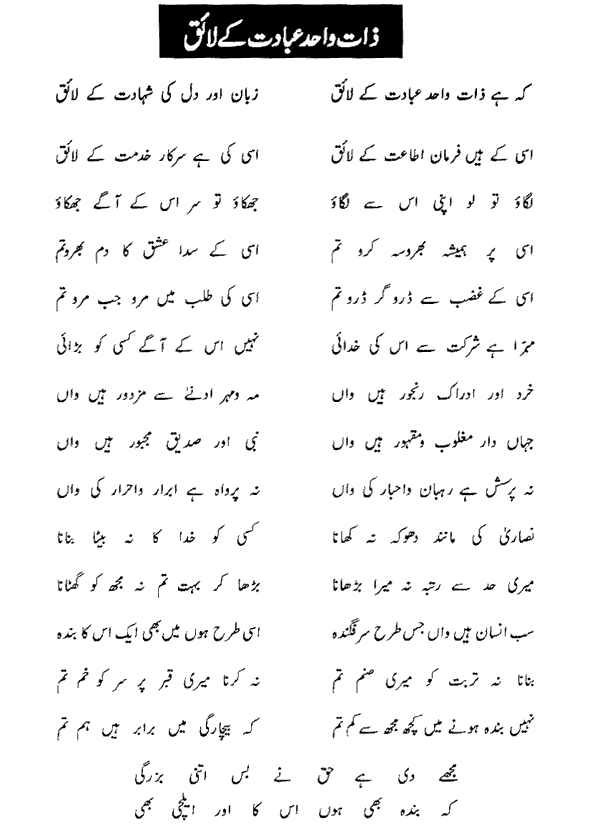 ذات واحد عبادت کے لائق
کہ ہے ذات واحد عبادت کے لائق زبان اور دل کی شہادت کے لائق
اسی کے ہیں فرمان اطاعت کے لائق اسی کی ہے سرکار خدمت کے لائق
لگاؤ تو لو اپنی اس سے لگاؤ جھکاؤ تو سر اس کے آگے جھکاؤ
اسی پر ہمیشہ بھروسہ کرو تم اسی کے سدا عشق کا دم بھرو تم
اسی کے غضب سے ڈرو گر ڈرو تم اسی کی طلب میں مرو جب مرو تم
مبرّا ہے شرکت سے اس کی خدائی نہیں اس کے آگے کسی کو بڑائی
خرد اور ادراک رنجور ہیں واں مہ ومہر ادنےٰ سے مزدور ہیں واں
جہاں دار مغلوب ومقہور ہیں واں نبی اور صدیق مجبور ہیں واں
نہ پرسش ہے رہبان واحبار کی واں نہ پرواہ ہے ابرار واحرار کی واں
نصاریٰ کی مانند دھوکہ نہ کھانا کسی کو خدا کا نہ بیٹا بنانا
میری حد سے رتبہ نہ میرا بڑھانا بڑھا کر بہت تم نہ مجھ کو گھٹانا
سب انسان ہیں واں جس طرح سرفگندہ اسی طرح ہوں میں بھی ایک اس کا بندہ
بنانا نہ تربت کو میری صنم تم نہ کرنا میری قبر پر سر کو خم تم
نہیں بندہ ہونے میں کچھ مجھ سے کم تم کہ بیچارگی میں برابر ہیں ہم تم
مجھے دی ہے حق نے بس اتنی بزرگی
کہ بندہ بھی ہوں اس کا اور ایلچی بھی